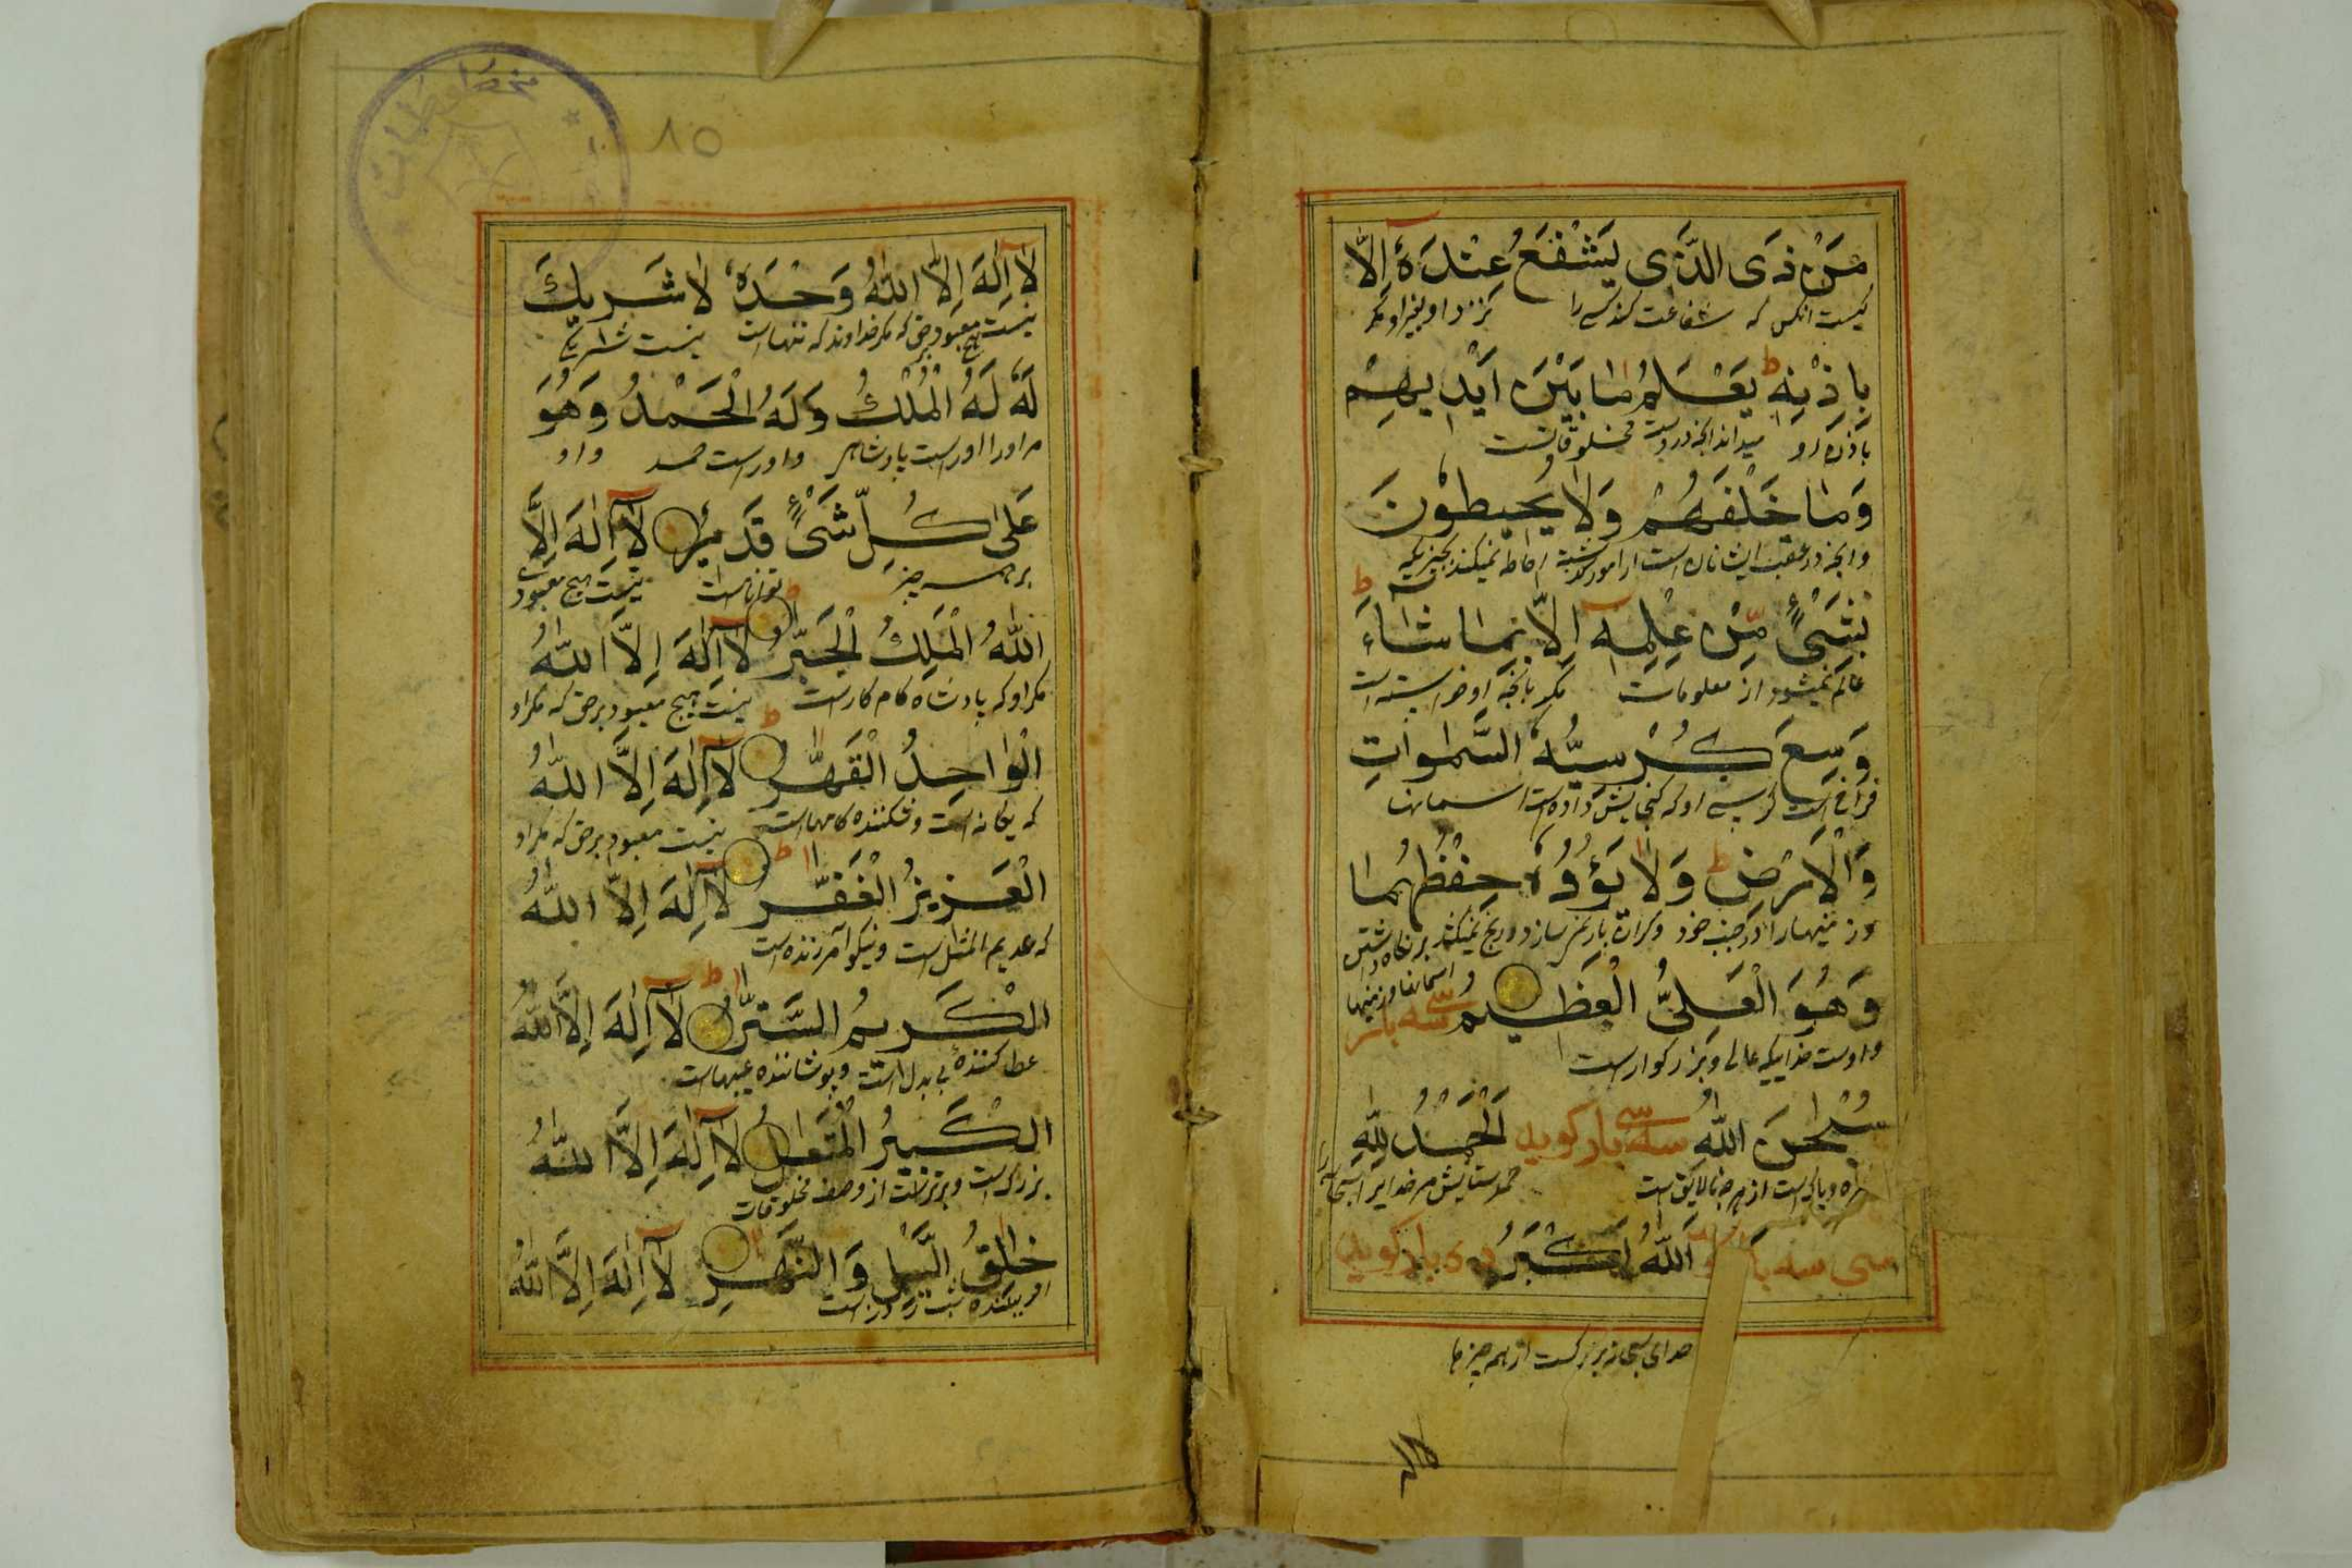 مَنْ ذَی الَّذَی یَشْفَعُ عِنْدَهُ اِلَّا
کیست انکس که شفاعت کند کسی را بنزد او بغیر او مگر
بِاِذْنِهٖ ط یَعْلَمُ مٰا بَیْنَ اَیْدِیهِمْ
باذن او میداند انچه در دست مخلوقاتست
وَمٰا خَلْفَهُمْ وَلٰا یُحیطُوْنَ
وانچه در عقب ایشانان است از امور گذشته احاطه نمیکند بچیزیکه
بِشَیْءٍ مِّنْ عِلْمِهٖ اِلّٰا بِمٰا شٰاءَ ط
عالم نمیشود از معلومات مگر بانچه او خواسته است
وَسِعَ کُرْسِیُّهُ السَّمٰوٰاتِ
فراخ است کرسی او که گنجایش داده است اسمانها
وَالْاَرْضِ ط وَلٰا یَؤُدُهُ حِفْظُهُمٰا
وزمینها را در جنب خود وگران بار نمیسازد ورنج نمیکند بر نگاه داشتن
اسمانها وزمینها
وَهُوَ الْعَلِیُّ الْعَظیمُ سه بار
واوست خداییکه عالی وبزرگوار است
سُبْحٰنَ اللّٰهِ سی سه بار گوید اَلْحَمْدُ لِلّٰهِ
وپاکی است از هر چه نالایق است حمد وستایش مر خدایرا
سی سه بار اَللّٰهُ اَکْبَرُ بار گوید
خدای سبحانه بزرگست از همه چیزها
لاٰ
۸۵
لٰا اِلٰهَ اِلَّا اللّٰهُ وَحْدَهُ لٰا شَریكَ
نیست هیچ معبود برحق که مگر خداوند که تنها است نیست شریکی
لَهُ لَهُ الْمُلْكُ وَلَهُ الْحَمْدُ وَهُوَ
مر او را اوراست پادشاهی واوراست حمد و او
عَلٰی کُلِّ شَیْءٍ قَدیرٌ لٰا اِلٰهَ اِلَّا
بر همه چیز توانا است نیست هیچ معبود
اللّٰهُ الْمَلِكُ الْجَبّٰرُ ط لٰا اِلٰهَ اِلَّا اللّٰهُ
مگر او که پادشاه کام کار است نیست هیچ معبود برحق که مگر او
الْوٰاحِدُ الْقَهّٰرُ ط لٰا اِلٰهَ اِلَّا اللّٰهُ
که یگانه است وشکننده کامها است نیست معبود برحق که مگر او
الْعَزیزُ الْغَفّٰرُ ط لٰا اِلٰهَ اِلَّا اللّٰهُ
که عدیم المثل است ونیکو آمرزنده است
الْکَریمُ السَّتّٰرُ ط لٰا اِلٰهَ اِلَّا اللّٰهُ
عطا کننده بی بدل است وپوشاننده عیبها است
الْکَبیرُ الْمُتَعٰالُ لٰا اِلٰهَ اِلَّا اللّٰهُ
بزرگ است وبرتر است از وصف مخلوقات
خٰالِقُ الَّیْلِ وَالنَّهٰرِ لٰا اِلٰهَ اِلَّا اللّٰهُ
افریننده شب وروز است